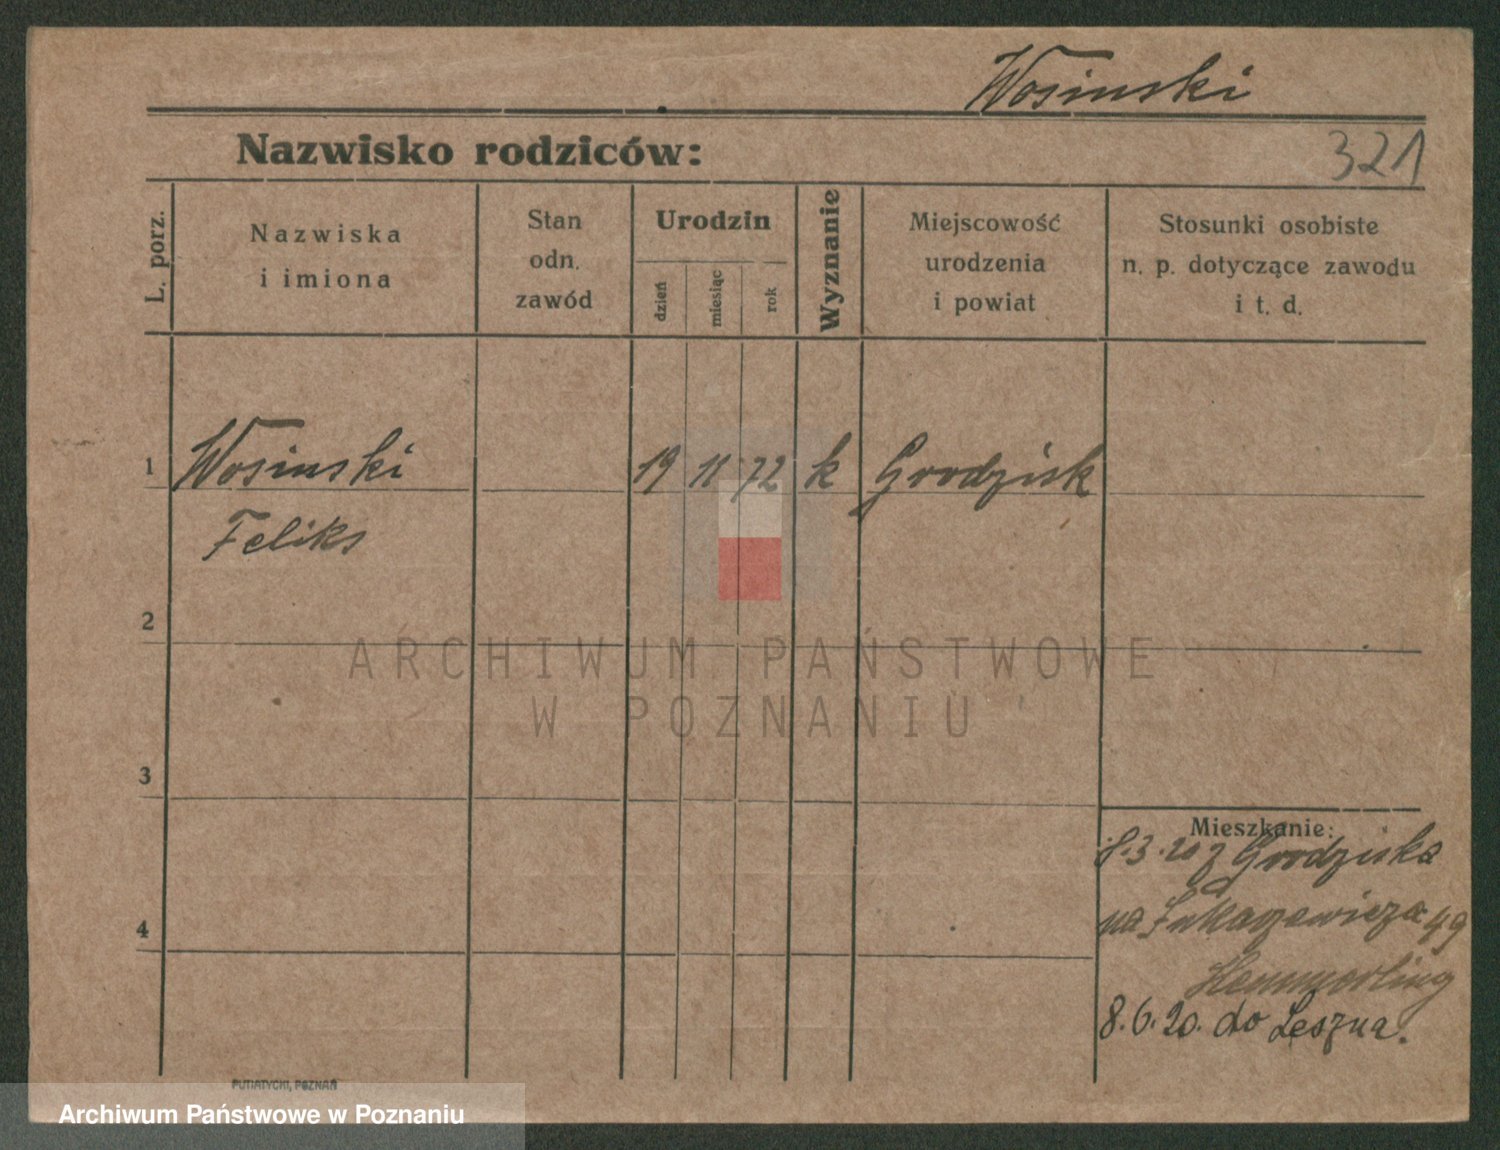 Wosinski
Nazwisko rodziców:
321
L. porz.
Nazwiska
i imiona
Stan
odn.
zawód
Urodzin
dzień
miesiąc
rok
Wyznanie
Miejscowość
urodzenia
i powiat
Stosunki osobiste
n. p. dotyczące zawodu
i t. d.
1
Wosinski
19
11
72
k
Grodzisk
Feliks
2
ARCHIWUM PAŃSTWOWE
W POZNANIU
3
Mieszkanie:
8.3.20 z Grodziska
na Łukaszewicza 49
Hemmerling
8.6.20. do Leszna.
4
PUTIATYCKI, POZNAŃ
Archiwum Państwowe w Poznaniu